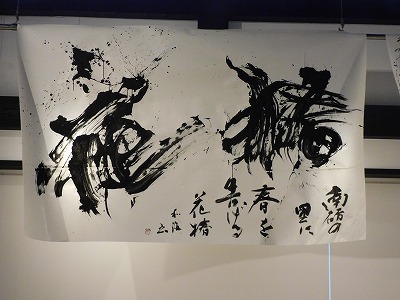 椿
南砺の
里に
春を
告げる
花椿